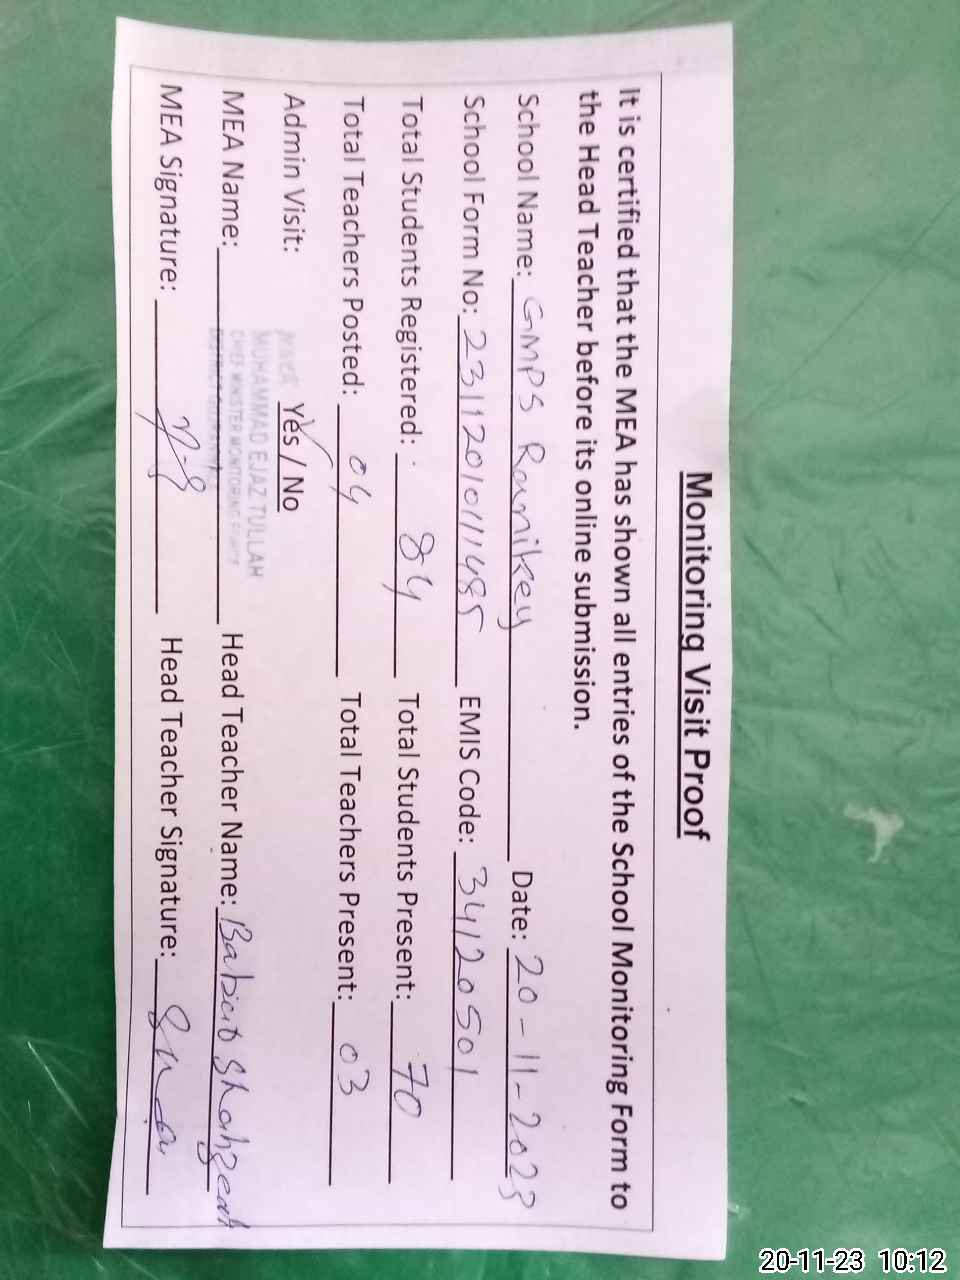 Monitoring Visit Proof
It is certified that the MEA has shown all entries of the School Monitoring Form to
the Head Teacher before its online submission.
School Name: GMPS Ramikey Date: 20-11-2023
School Form No: 231120101111485 EMIS Code: 34120501
Total Students Registered: 84 Total Students Present: 70
Total Teachers Posted: 04 Total Teachers Present: 03
Admin Visit: Yes / No
MUHAMMAD EJAZ TULLAH
CHIEF MINISTER MONITORING
DISTRICT
MEA Name: Head Teacher Name: Shahzad
MEA Signature: Head Teacher Signature:
20-11-23 10:12